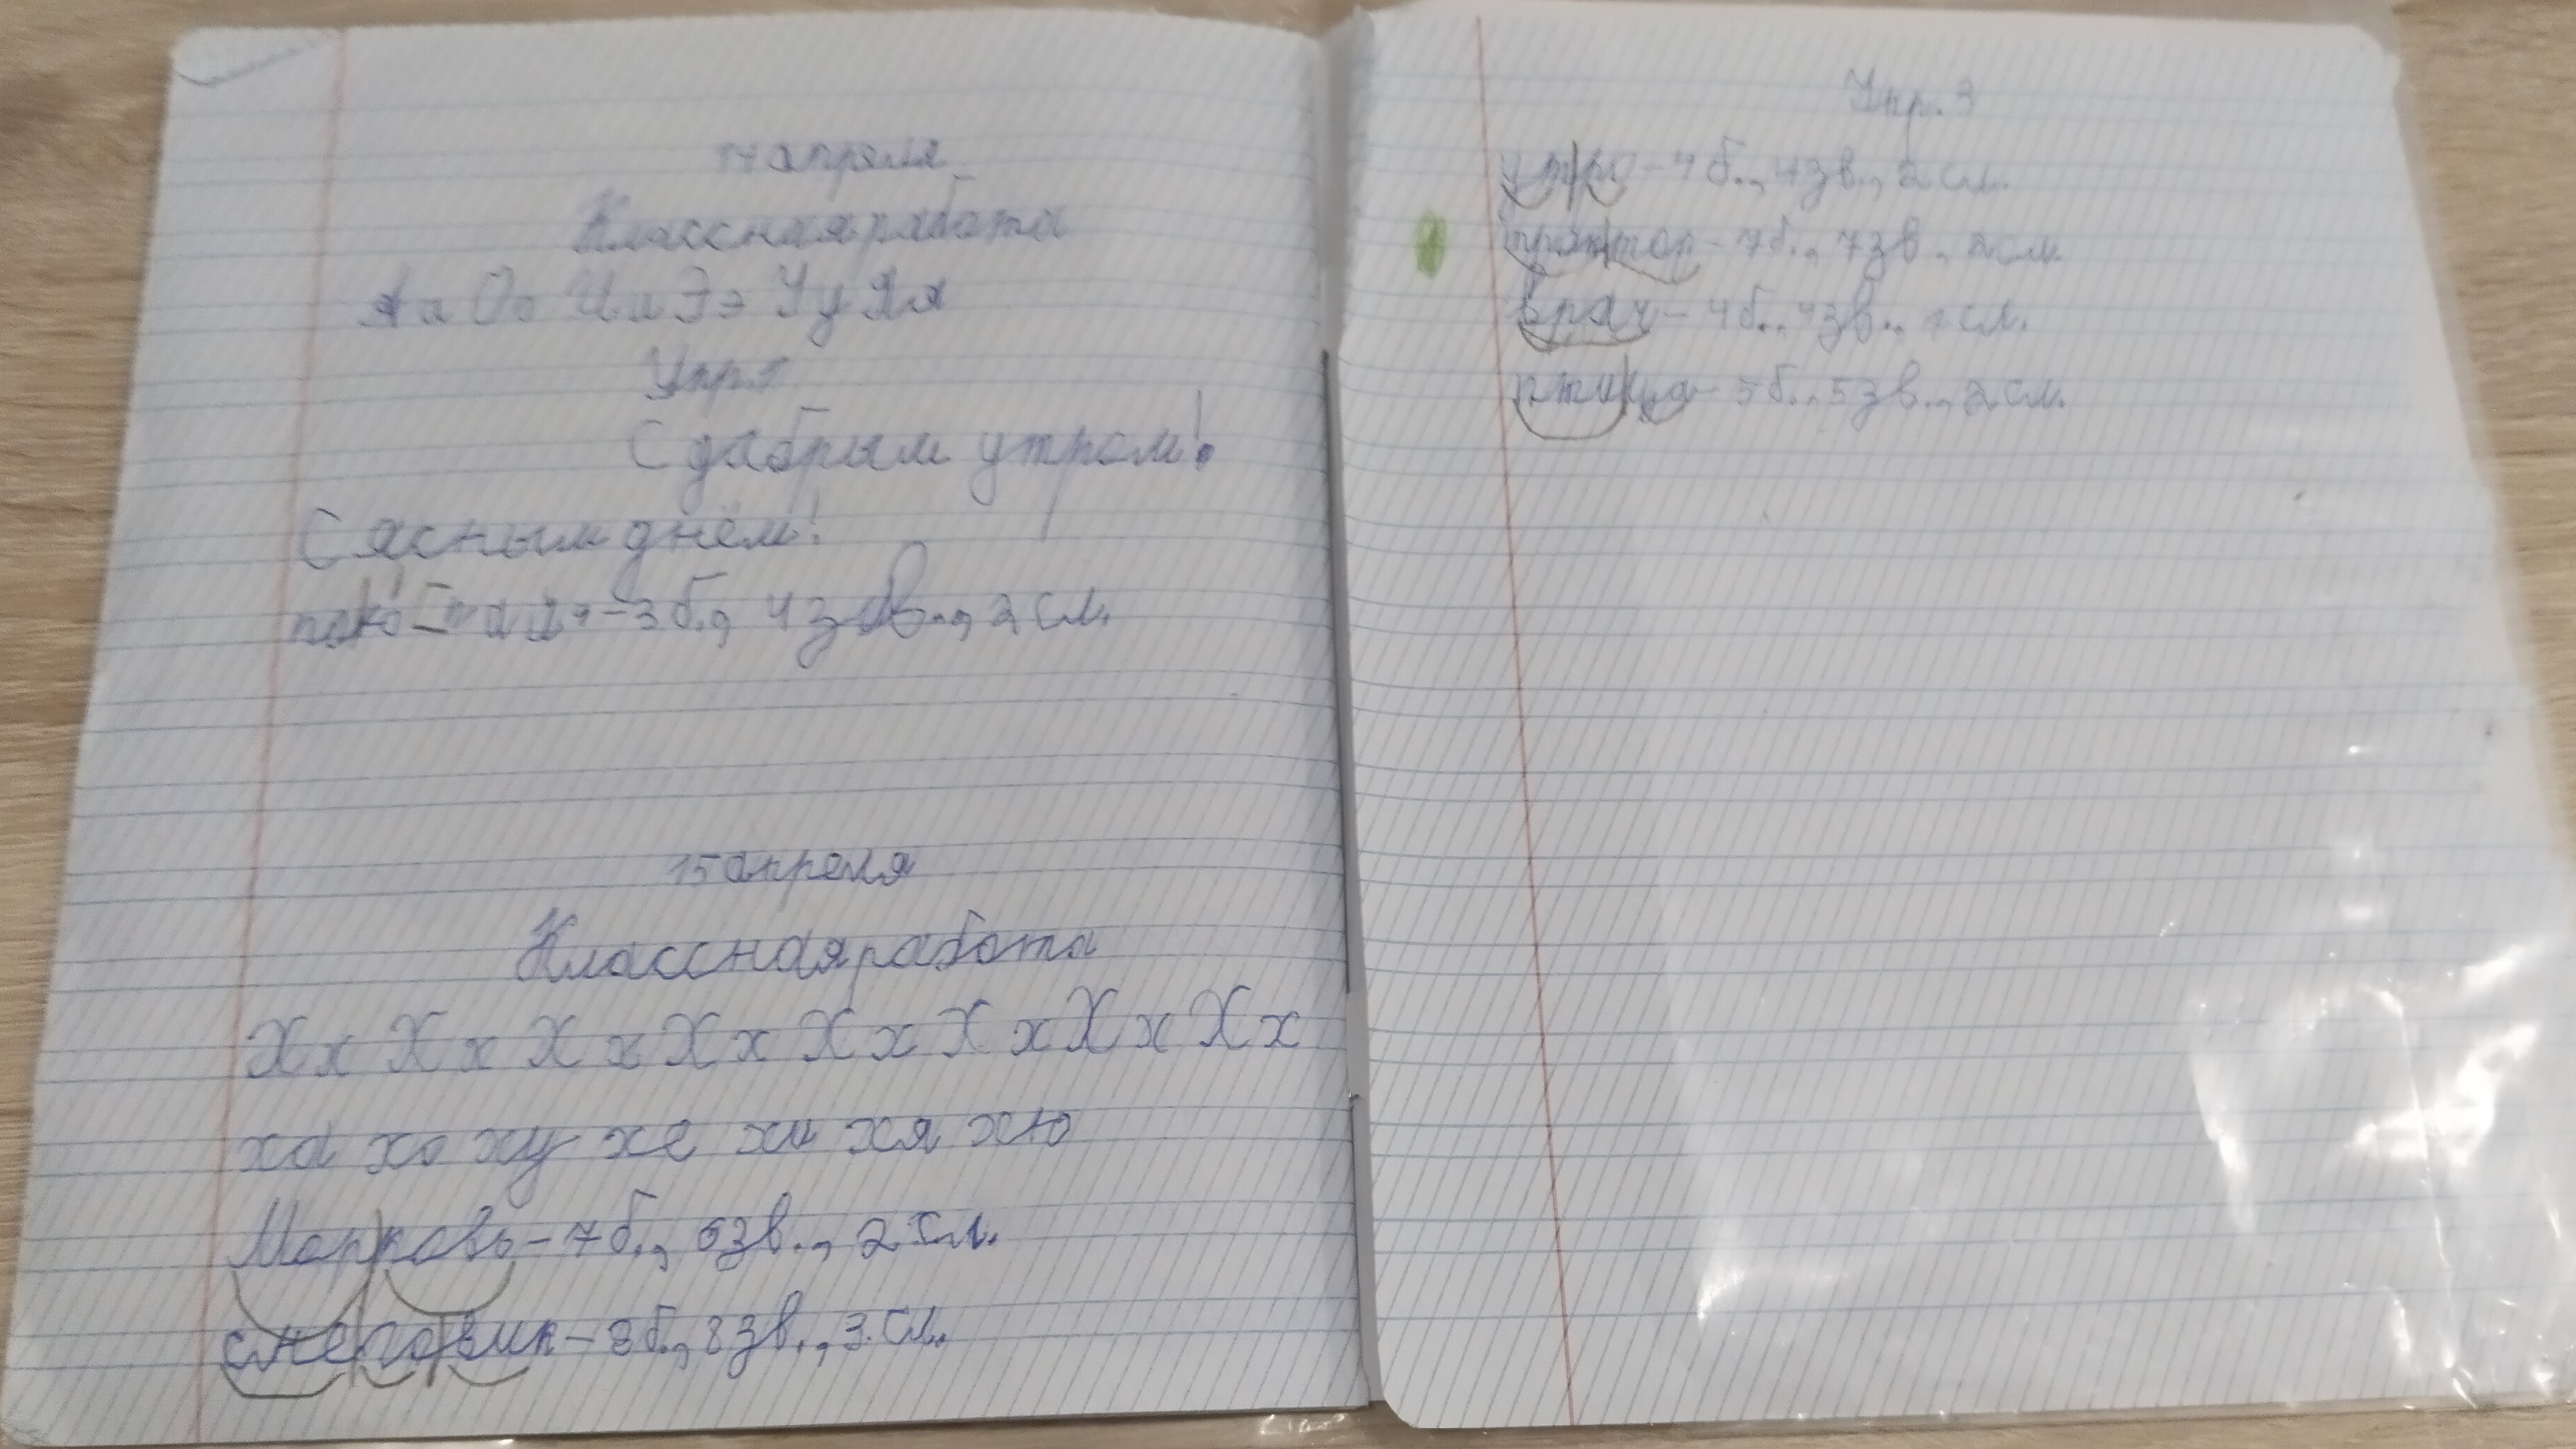 14 апреля
Классная работа
Аа Оо Ии Ээ Уу Яя
Упр. 1
С дабрым утром!
С ясным днём!
3 б., 4 зв., 2 сл.
15 апреля
Классная работа
Хх Хх Хх Хх Хх Хх Хх Хх
ха хо ху хе хи хя хю
Морковь – 7 б., 6 зв., 2 сл.
снеговик – 8 б., 8 зв., 3 сл.
Упр. 3
утро – 4 б., 4 зв., 2 сл.
трактор – 7 б., 7 зв., 2 сл.
врач – 4 б., 4 зв., 1 сл.
птица – 5 б., 5 зв., 2 сл.